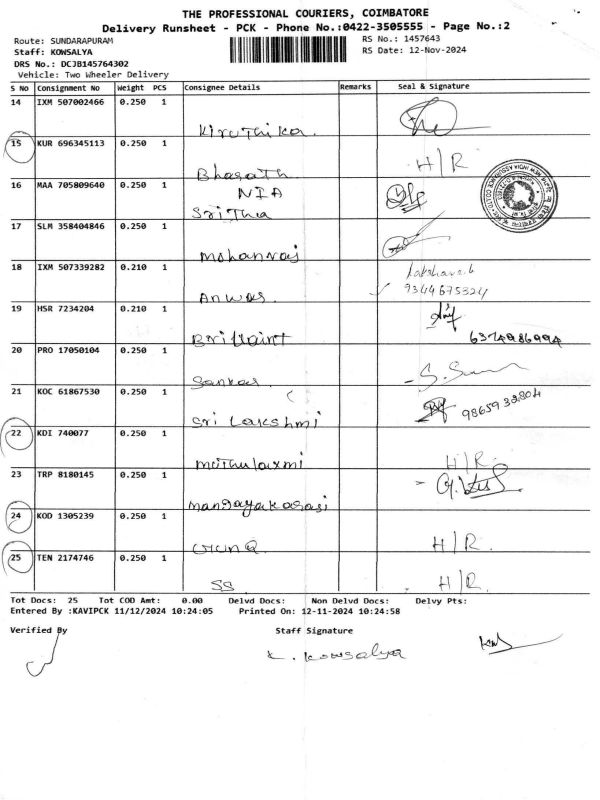 THE PROFESSIONAL COURIERS, COIMBATORE
Delivery Runsheet - PCK - Phone No.:0422-3505555 - Page No.:2
Route: SUNDARAPURAM RS No.: 1457643
Staff: KOWSALYA RS Date: 12-Nov-2024
DRS No.: DCJB145764302
Vehicle: Two Wheeler Delivery
S No Consignment No Weight PCS Consignee Details Remarks Seal & Signature
14 IXM 507002466 0.250 1
Kiruthika.
15 KUR 696345113 0.250 1 H/R
Bharath
16 MAA 705809640 0.250 1 NIA
Srithia
17 SLM 358404846 0.250 1
Mohanraj
18 IXM 507339282 0.210 1
Anwas. 9344675324
19 HSR 7234204 0.210 1
Brilliaint 6374986994
20 PRO 17050104 0.250 1
Sankar.
21 KOC 61867530 0.250 1
Sri Lakshmi
22 KDI 740077 0.250 1
muthulaxmi H/R.
23 TRP 8180145 0.250 1
mangayakarasi
24 KOD 1305239 0.250 1
H/R.
25 TEN 2174746 0.250 1
SS H/R.
Tot Docs: 25 Tot COD Amt: 0.00 Delvd Docs: Non Delvd Docs: Delvy Pts:
Entered By :KAVIPCK 11/12/2024 10:24:05 Printed On: 12-11-2024 10:24:58
Verified By Staff Signature
K. Kowsalya